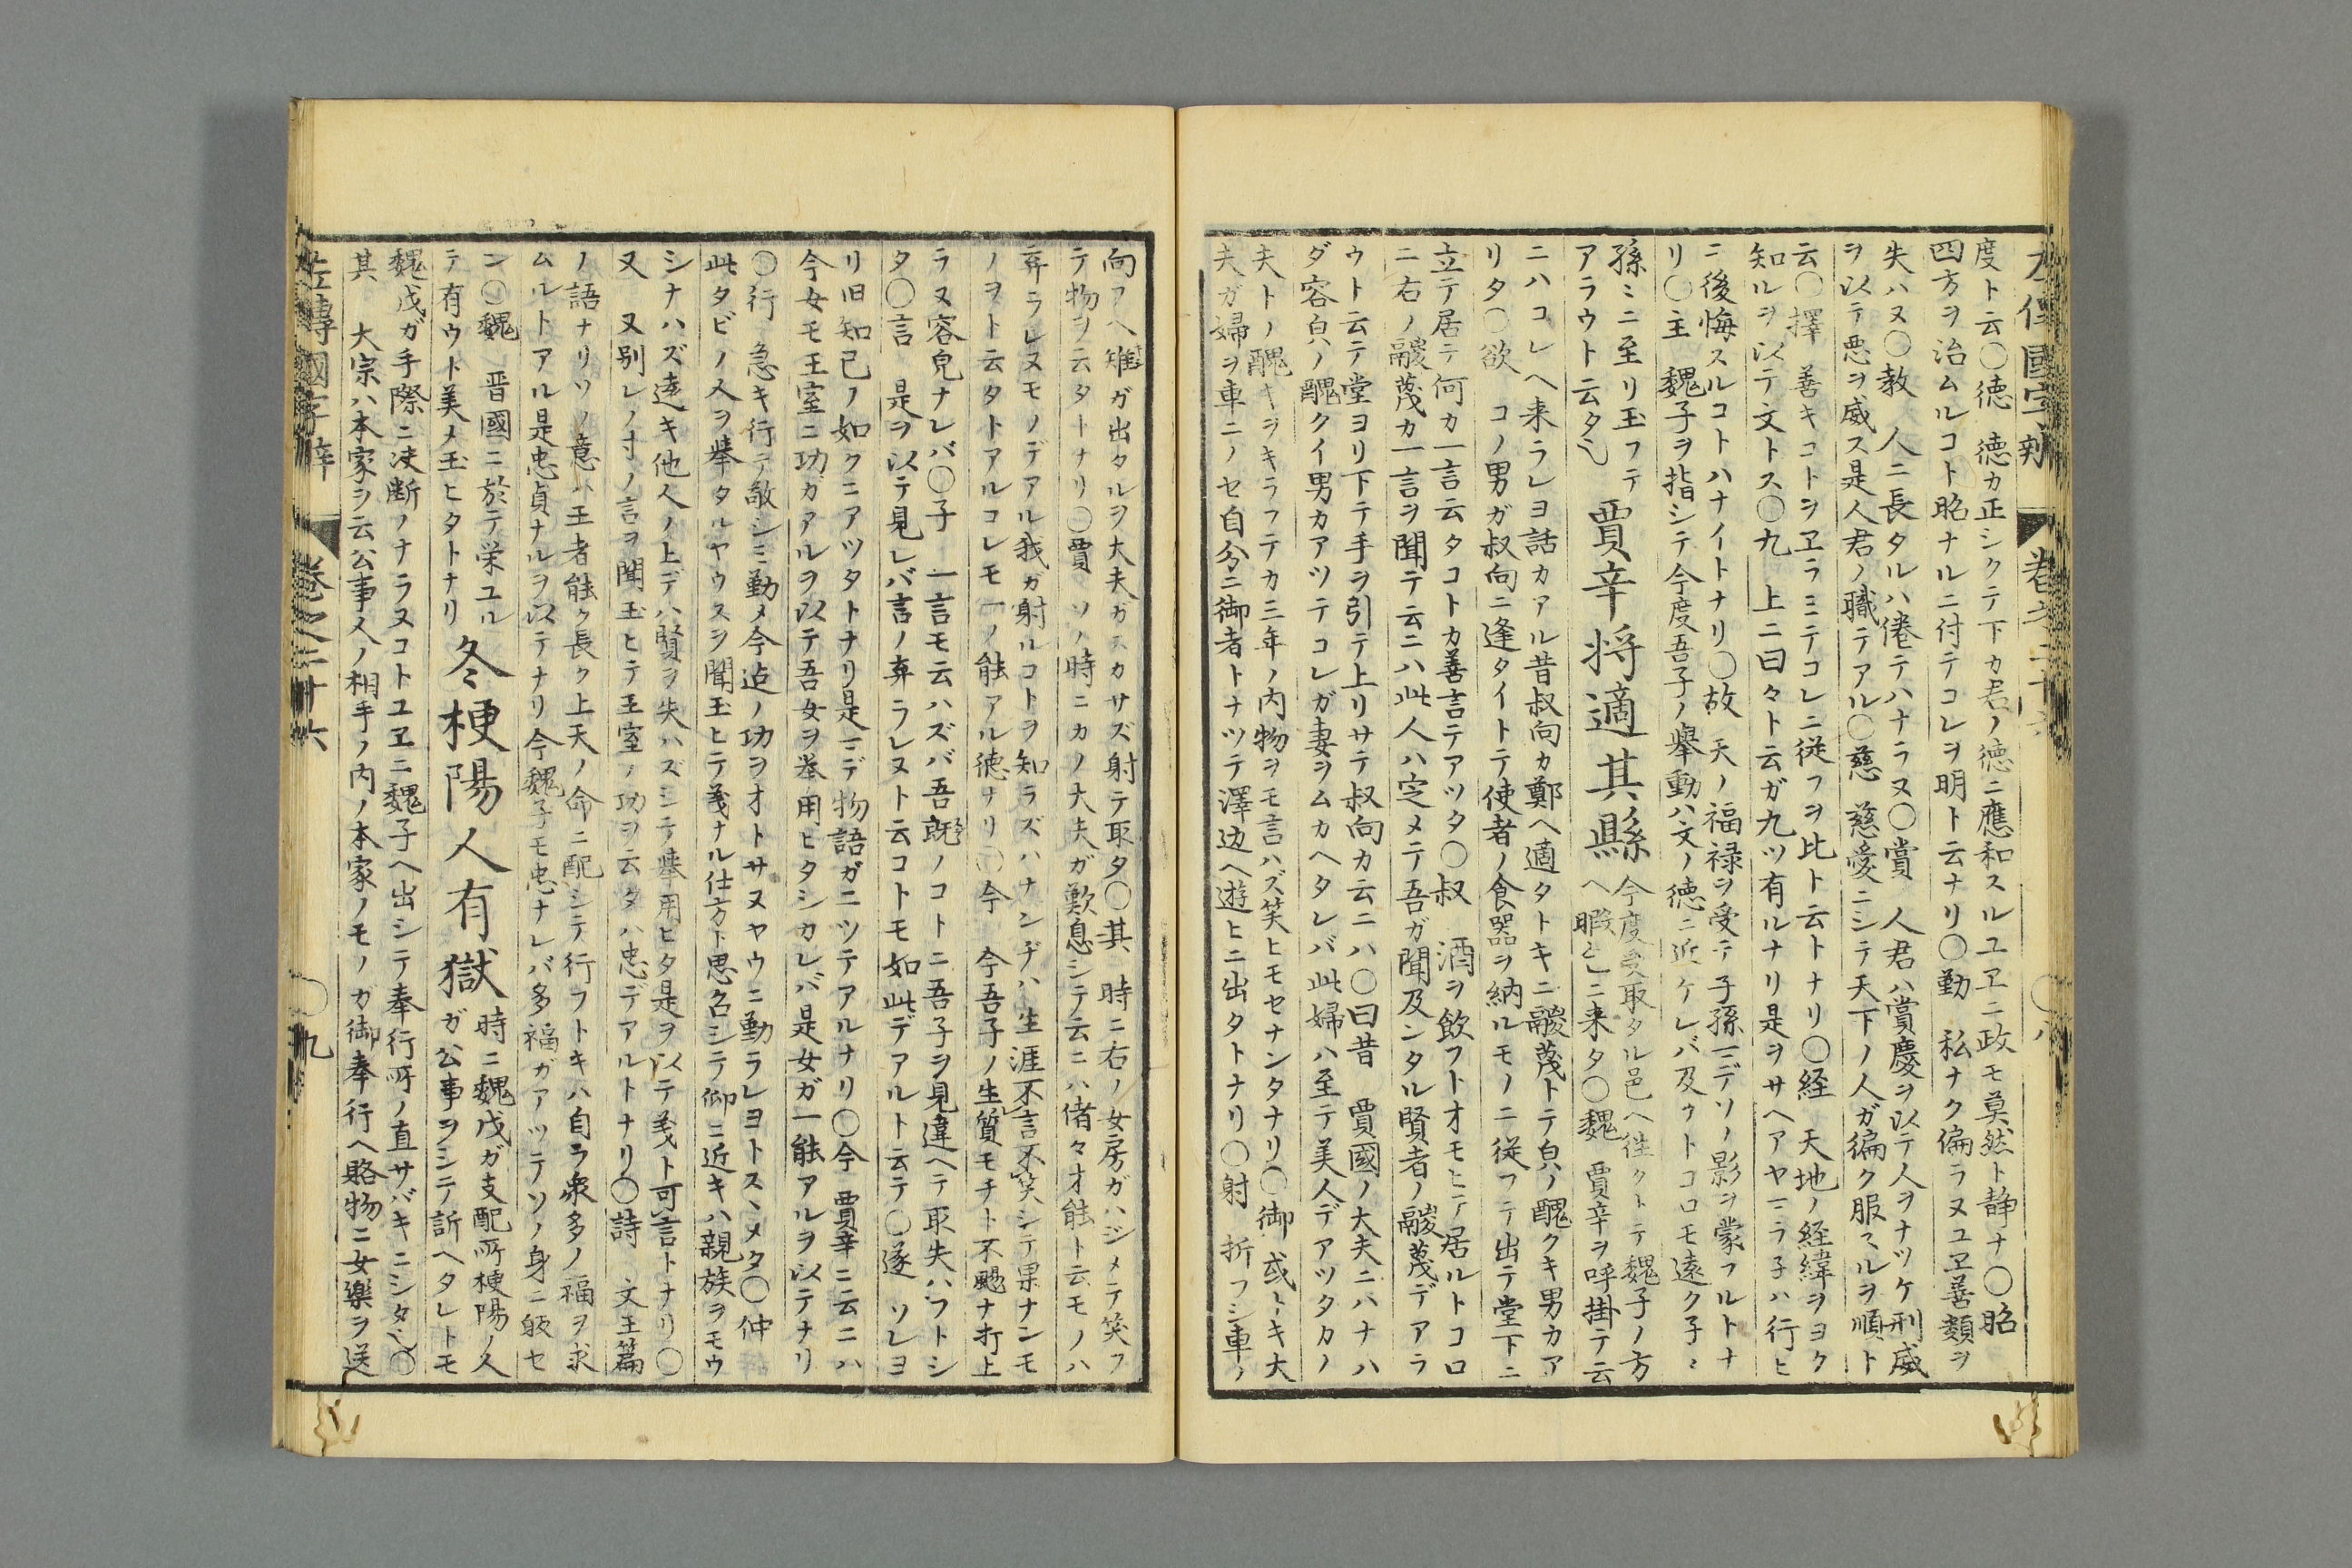 左傳國字辨　卷之二十六　〇八
度ト云〇徳　徳カ正シクテ下カ君ノ徳ニ應和スルユヱニ政モ莫然ト静ナ〇昭
四方ヲ治ムルコト昭ナルニ付テコレヲ明ト云ナリ〇勤　私ナク偏ラヌユヱ善類ヲ
失ハヌ〇教　人ニ長タルハ倦テハナラヌ〇賞　人君ハ賞慶ヲ以テ人ヲナツケ刑威
ヲ以テ悪ヲ威ス是人君ノ職テアル〇慈　慈愛ニシテ天下ノ人ガ徧ク服スルヲ順ト
云〇擇　善キコトヲヱラミテコレニ従フヲ比ト云トナリ〇経　天地ノ経緯ヲヨク
知ルヲ以テ文トス〇九　上ニ曰々ト云ガ九ツ有ルナリ是ヲサヘアヤマラ子ハ行ヒ
ニ後悔スルコトハナイトナリ〇故　天ノ福禄ヲ受テ子孫マデソノ影ヲ蒙フルトナ
リ〇主　魏子ヲ指シテ今度吾子ノ舉動ハ文ノ徳ニ近ケレバ及ウトコロモ遠ク子々
孫ミニ至リ玉フテ
アラウト云タ
賈辛将適其縣
今度受取タル邑ヘ徃クトテ魏子ノ方
ヘ暇乞ニ来タ〇魏　賈辛ヲ呼掛テ云
ニハコレヘ来ラレヨ話カアル昔叔向カ鄭ヘ適タトキニ鬷蔑トテ皃ノ醜クキ男カア
リタ〇欲　コノ男ガ叔向ニ逢タイトテ使者ノ食器ヲ納ルモノニ従フテ出テ堂下ニ
立テ居テ何カ一言云タコトカ善言テアツタ〇叔　酒ヲ飲フトオモヒテ居ルトコロ
ニ右ノ鬷蔑カ一言ヲ聞テ云ニハ此人ハ定メテ吾ガ聞及ンタル賢者ノ鬷蔑デアラ
ウト云テ堂ヨリ下テ手ヲ引テ上リサテ叔向カ云ニハ〇曰昔　賈國ノ大夫ニハナハ
ダ容皃ノ醜クイ男カアツテコレガ妻ヲムカヘタレバ此婦ハ至テ美人デアツタカノ
夫トノ醜キヲキラフテカ三年ノ内物ヲモ言ハズ笑ヒモセナンタナリ〇御　或トキ大
夫ガ婦ヲ車ニノセ自分ニ御者トナツテ澤辺ヘ遊ヒニ出タトナリ〇射　折フシ車ノ
向フヘ雉ガ出タルヲ大夫ガスカサズ射テ取タ〇其　時ニ右ノ女房ガハジメテ笑フ
テ物ヲ云タトナリ〇賈　ソノ時ニカノ大夫ガ歎息シテ云ニハ偖々才能ト云モノハ
弃ラレヌモノデアル我ガ射ルコトヲ知ラズハナンヂハ生涯不言不笑シテ果ナンモ
ノヲト云タトアルコレモ一ノ能アル徳ナリ〇今　今吾子ノ生質モチト不颺ナ打上
ラヌ容皃ナレバ〇子　一言モ云ハズバ吾既ノコトニ吾子ヲ見違ヘテ取失ハフトシ
タ〇言　是ヲ以テ見レバ言ノ弃ラレヌト云コトモ如此デアルト云テ〇遂　ソレヨ
リ旧知己ノ如クニアツタトナリ是マデ物語ガニツテアルナリ〇今　賈辛ニ云ニハ
今女モ王室ニ功ガアルヲ以テ吾女ヲ举用ヒタシカレバ是女ガ一能アルヲ以テナリ
〇行　急キ行テ敬シミ勤メ今迠ノ功ヲオトサヌヤウニ勤ラレヨトスヽメタ〇仲
此タビノ人ヲ舉タルヤウスヲ聞玉ヒテ義ナル仕方ト思召シテ仰ニ近キハ親族ヲモウ
シナハズ遠キ他人ノ上デハ賢ヲ失ハズシテ舉用ヒタ是ヲ以テ義ト可言トナリ〇
又　又别レノ寸ノ言ヲ聞玉ヒテ王室ノ功ヲ云タハ忠デアルトナリ〇詩　文王篇
ノ語ナリソノ意ハ王者能ク長ク上天ノ命ニ配シテ行フトキハ自ラ衆多ノ福ヲ求
ムルトアル是忠貞ナルヲ以テナリ今魏子モ忠ナレバ多福ガアツテソノ身ニ皈セ
ン〇魏　晋國ニ於テ栄ユル
テ有ウト美メ玉ヒタトナリ
冬梗陽人有獄
時ニ魏戊ガ支配所梗陽ノ人
ガ公事ヲシテ訴ヘタレトモ
魏戊ガ手際ニ决断ノナラヌコトユヱニ魏子ヘ出シテ奉行所ノ直サバキニシタ〇
其　大宗ハ本家ヲ云公事人ノ相手ノ内ノ本家ノモノガ御奉行ヘ賂物ニ女樂ヲ送
左傳國字辨　卷之二十六　〇九